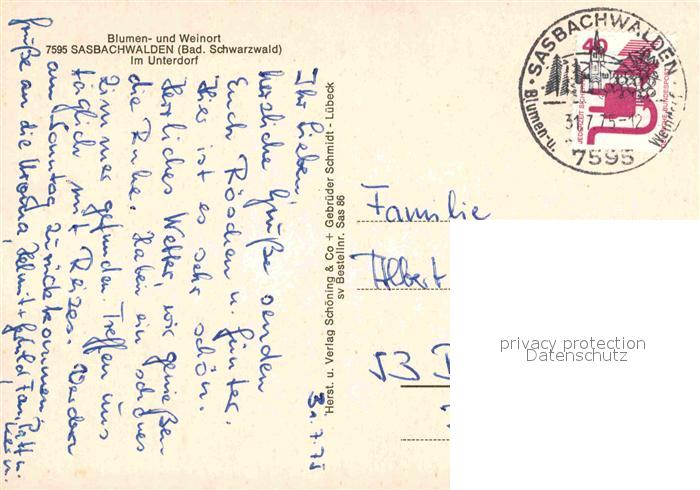 Blumen- und Weinort
7595 SASBACHWALDEN (Bad. Schwarzwald)
Im Unterdorf
31.7.75
Ihr Lieben,
herzliche Grüße senden
Euch Röschen u. Günter.
Hier ist es sehr schön.
Herrliches Wetter, wir genießen
die Ruhe. Haben ein schönes
Zimmer gefunden. Treffen uns
täglich mit Reizes. Werden
am Sonntag zurückkommen,
Grüße an die
Herst. u. Verlag Schöning & Co + Gebrüder Schmidt - Lübeck
sv Bestellnr. Sas 86
SASBACHWALDEN
Blumen-u. Weindorf
31.7.75-12
7595
40
JEDERZEIT SICHERHEIT
DEUTSCHE BUNDESPOST
Familie
Albert
53
privacy protection
Datenschutz